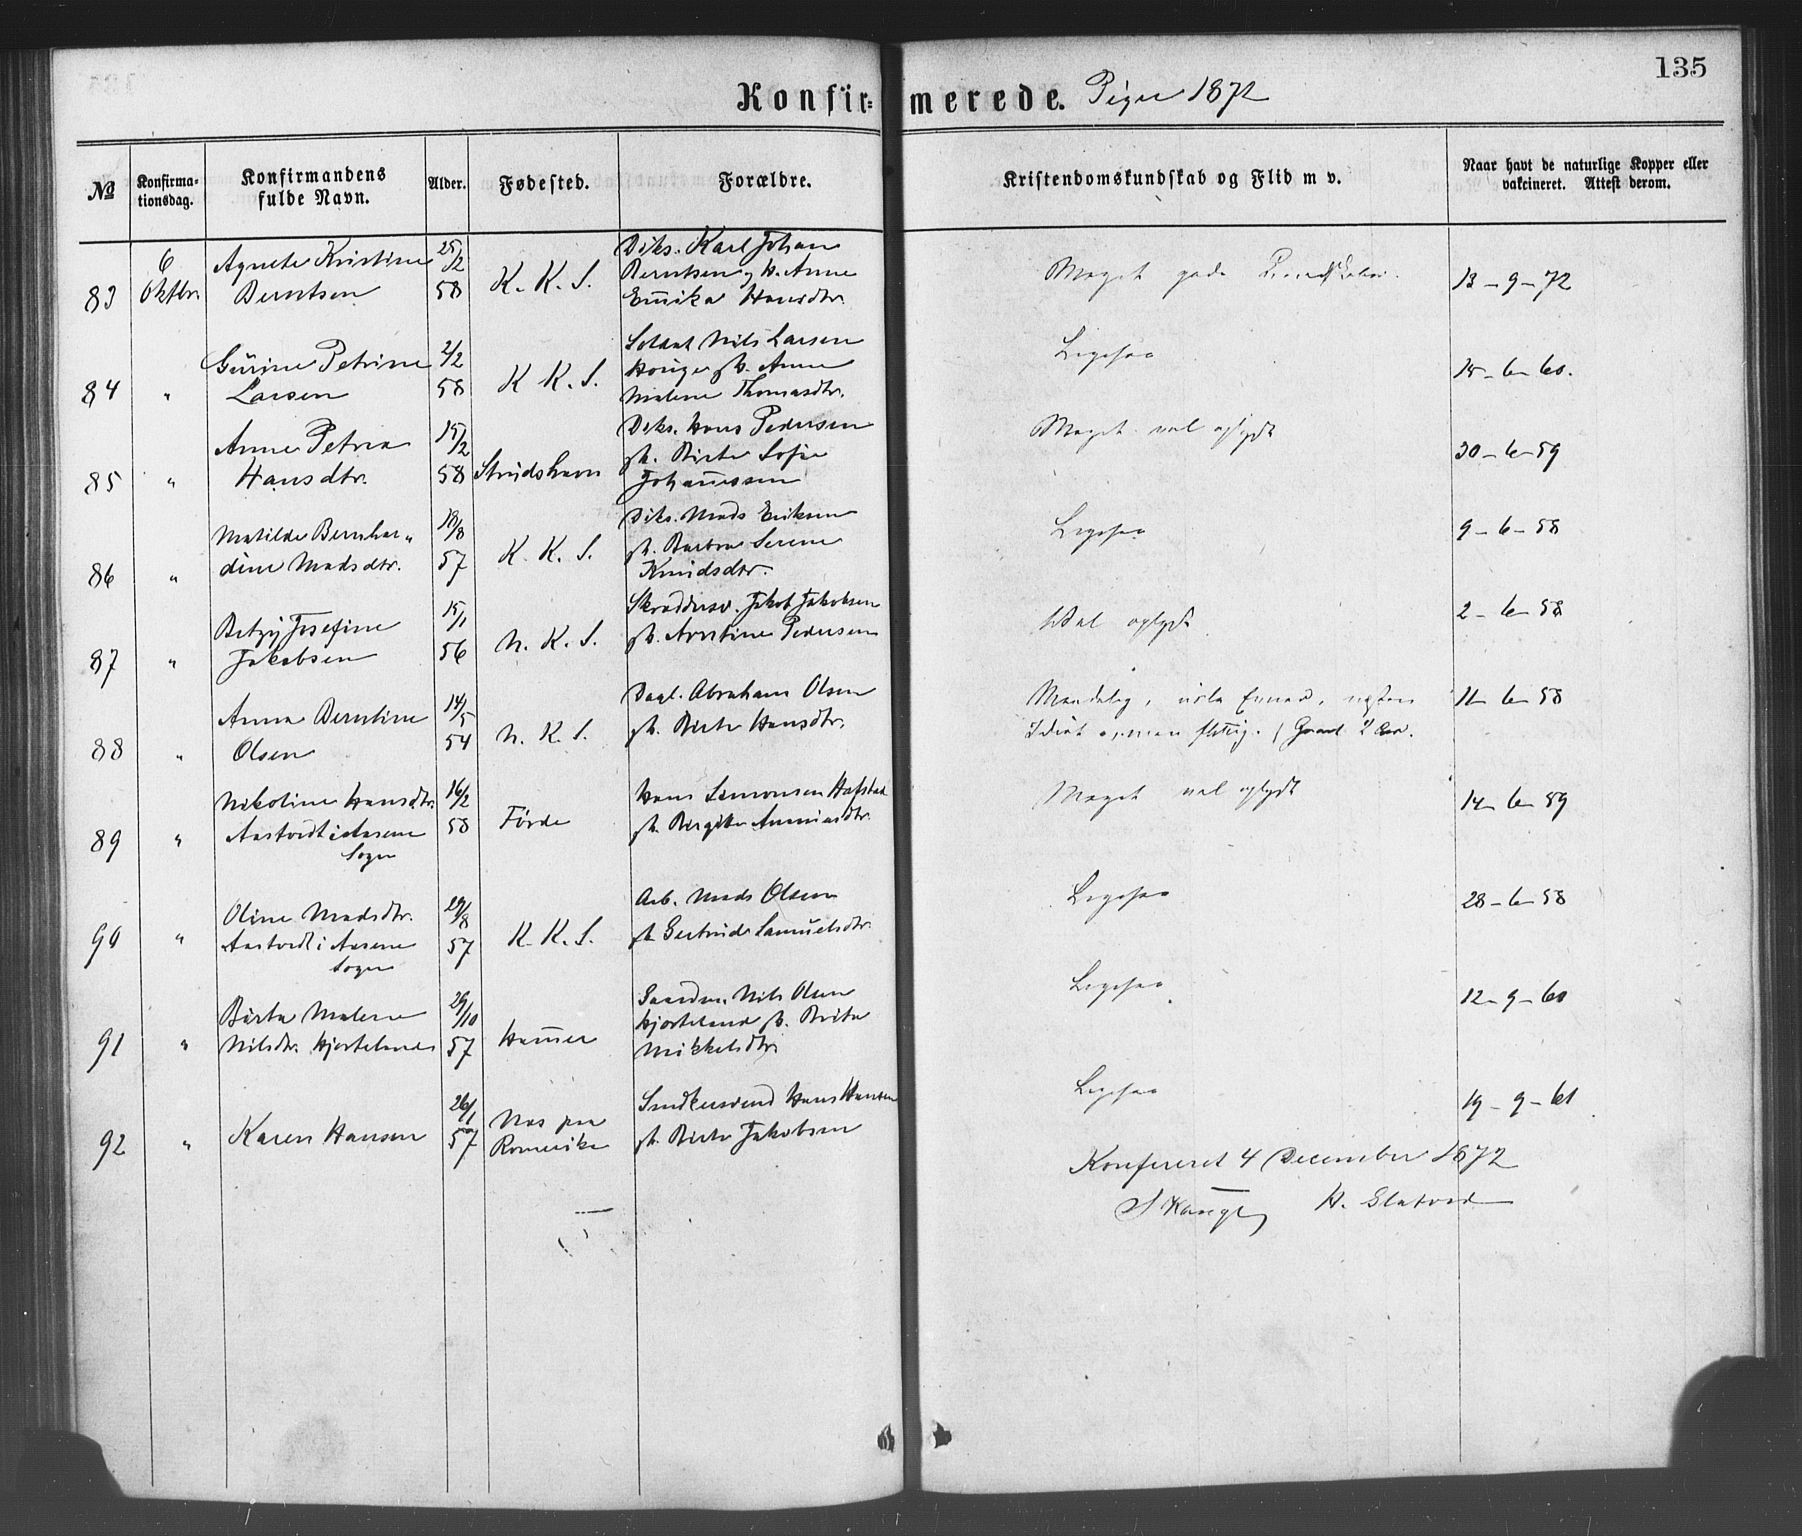 135
Konfir=merede. Piger 1872
№
Konfirma-
tionsdag.
Konfirmandens
fulde Navn.
Alder.
Fødested.
Forældre.
Kristendomskundskab og Flid m v.
Naar havt de naturlige Kopper eller
vakcineret. Attest derom.
83
6
Oktbr.
Agnete Kristine
Berntsen
25/2
58
K. K. S.
Diks. Karl Johan
Berntsen, h. Anne
Emika Hansdtr.
Meget gode Kundskaber.
13-9-72
84 "
Gurine Petrine
Larsen
2/2
58
K K. S.
Soldat Nils Larsen
h. Anne
Malene Thomasdtr.
Ligesaa
15-6-60.
85 "
Anne Petrea
Hansdtr.
15/2
58
Strudshavn
Diks. Hans Pedersen
h. Birte Sofie
Johannessen
Meget vel oplyst
30-6-59
86 "
Matilde Bernhar„
dine Madsdtr.
18/8
57
K. K. S.
Diks. Mads Eriksen
h. Barbra Serene
Knudsdtr.
Ligesaa
9-6-58
87 "
Betzy Josefine
Jakobsen
15/1
56
N. K. S.
Skräddersv. Jakob Jakobsen
h. Pedersen
Vel oplyst
2-6-58
88 "
Anna Berntine
Olsen
14/5
54
N. K. S.
Dagl. Abraham Olsen
h. Birte Hansdtr.
næsten
Idiot flittig.
11-6-58
89 "
Nikoline Hansdtr.
Aastvedt i Aasene
Sogn
16/2
58
Förde
Hans Simonsen Hafstad
h. Birgitte
Meget vel oplyst
14-6-59
90 "
Oline Madsdtr.
Aastvedt i Aasene
Sogn
29/8
57
K. K. S.
Arb. Mads Olsen
h. Gertrude Samuelsdtr.
Ligesaa
28-6-58
91 "
Birte Malene
Nilsdtr. Hjorteland
29/10
57
Hammer
Gaardm. Nils Olsen
Hjorteland h. Brita
Mikkelsdtr.
Ligesaa
12-9-60
92 "
Karen Hansen
26/1
57
Nes paa
Romerike
Snedkersvend Hans Hansen
h. Birte Jakobsen
Ligesaa
19-9-61
Konfereret 4 December 1872